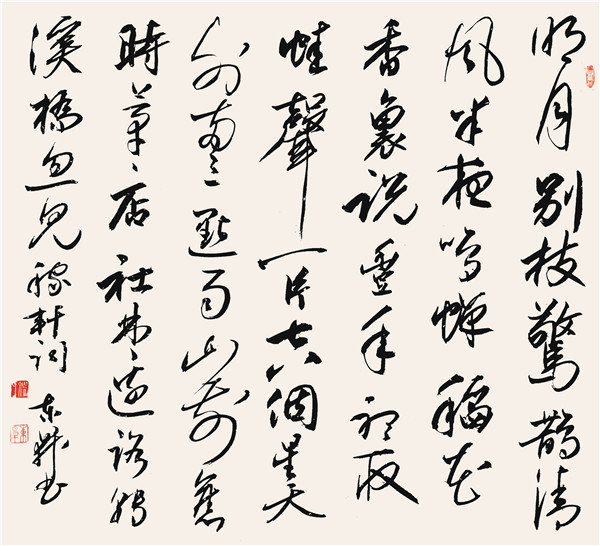 明月别枝驚鵲清
風半夜鳴蟬稻花
香裏説豐年聽取
蛙聲一片七八個星天
外兩三點雨山前舊
時茅店社林邊路轉
溪橋忽見 稼軒詞 東 書